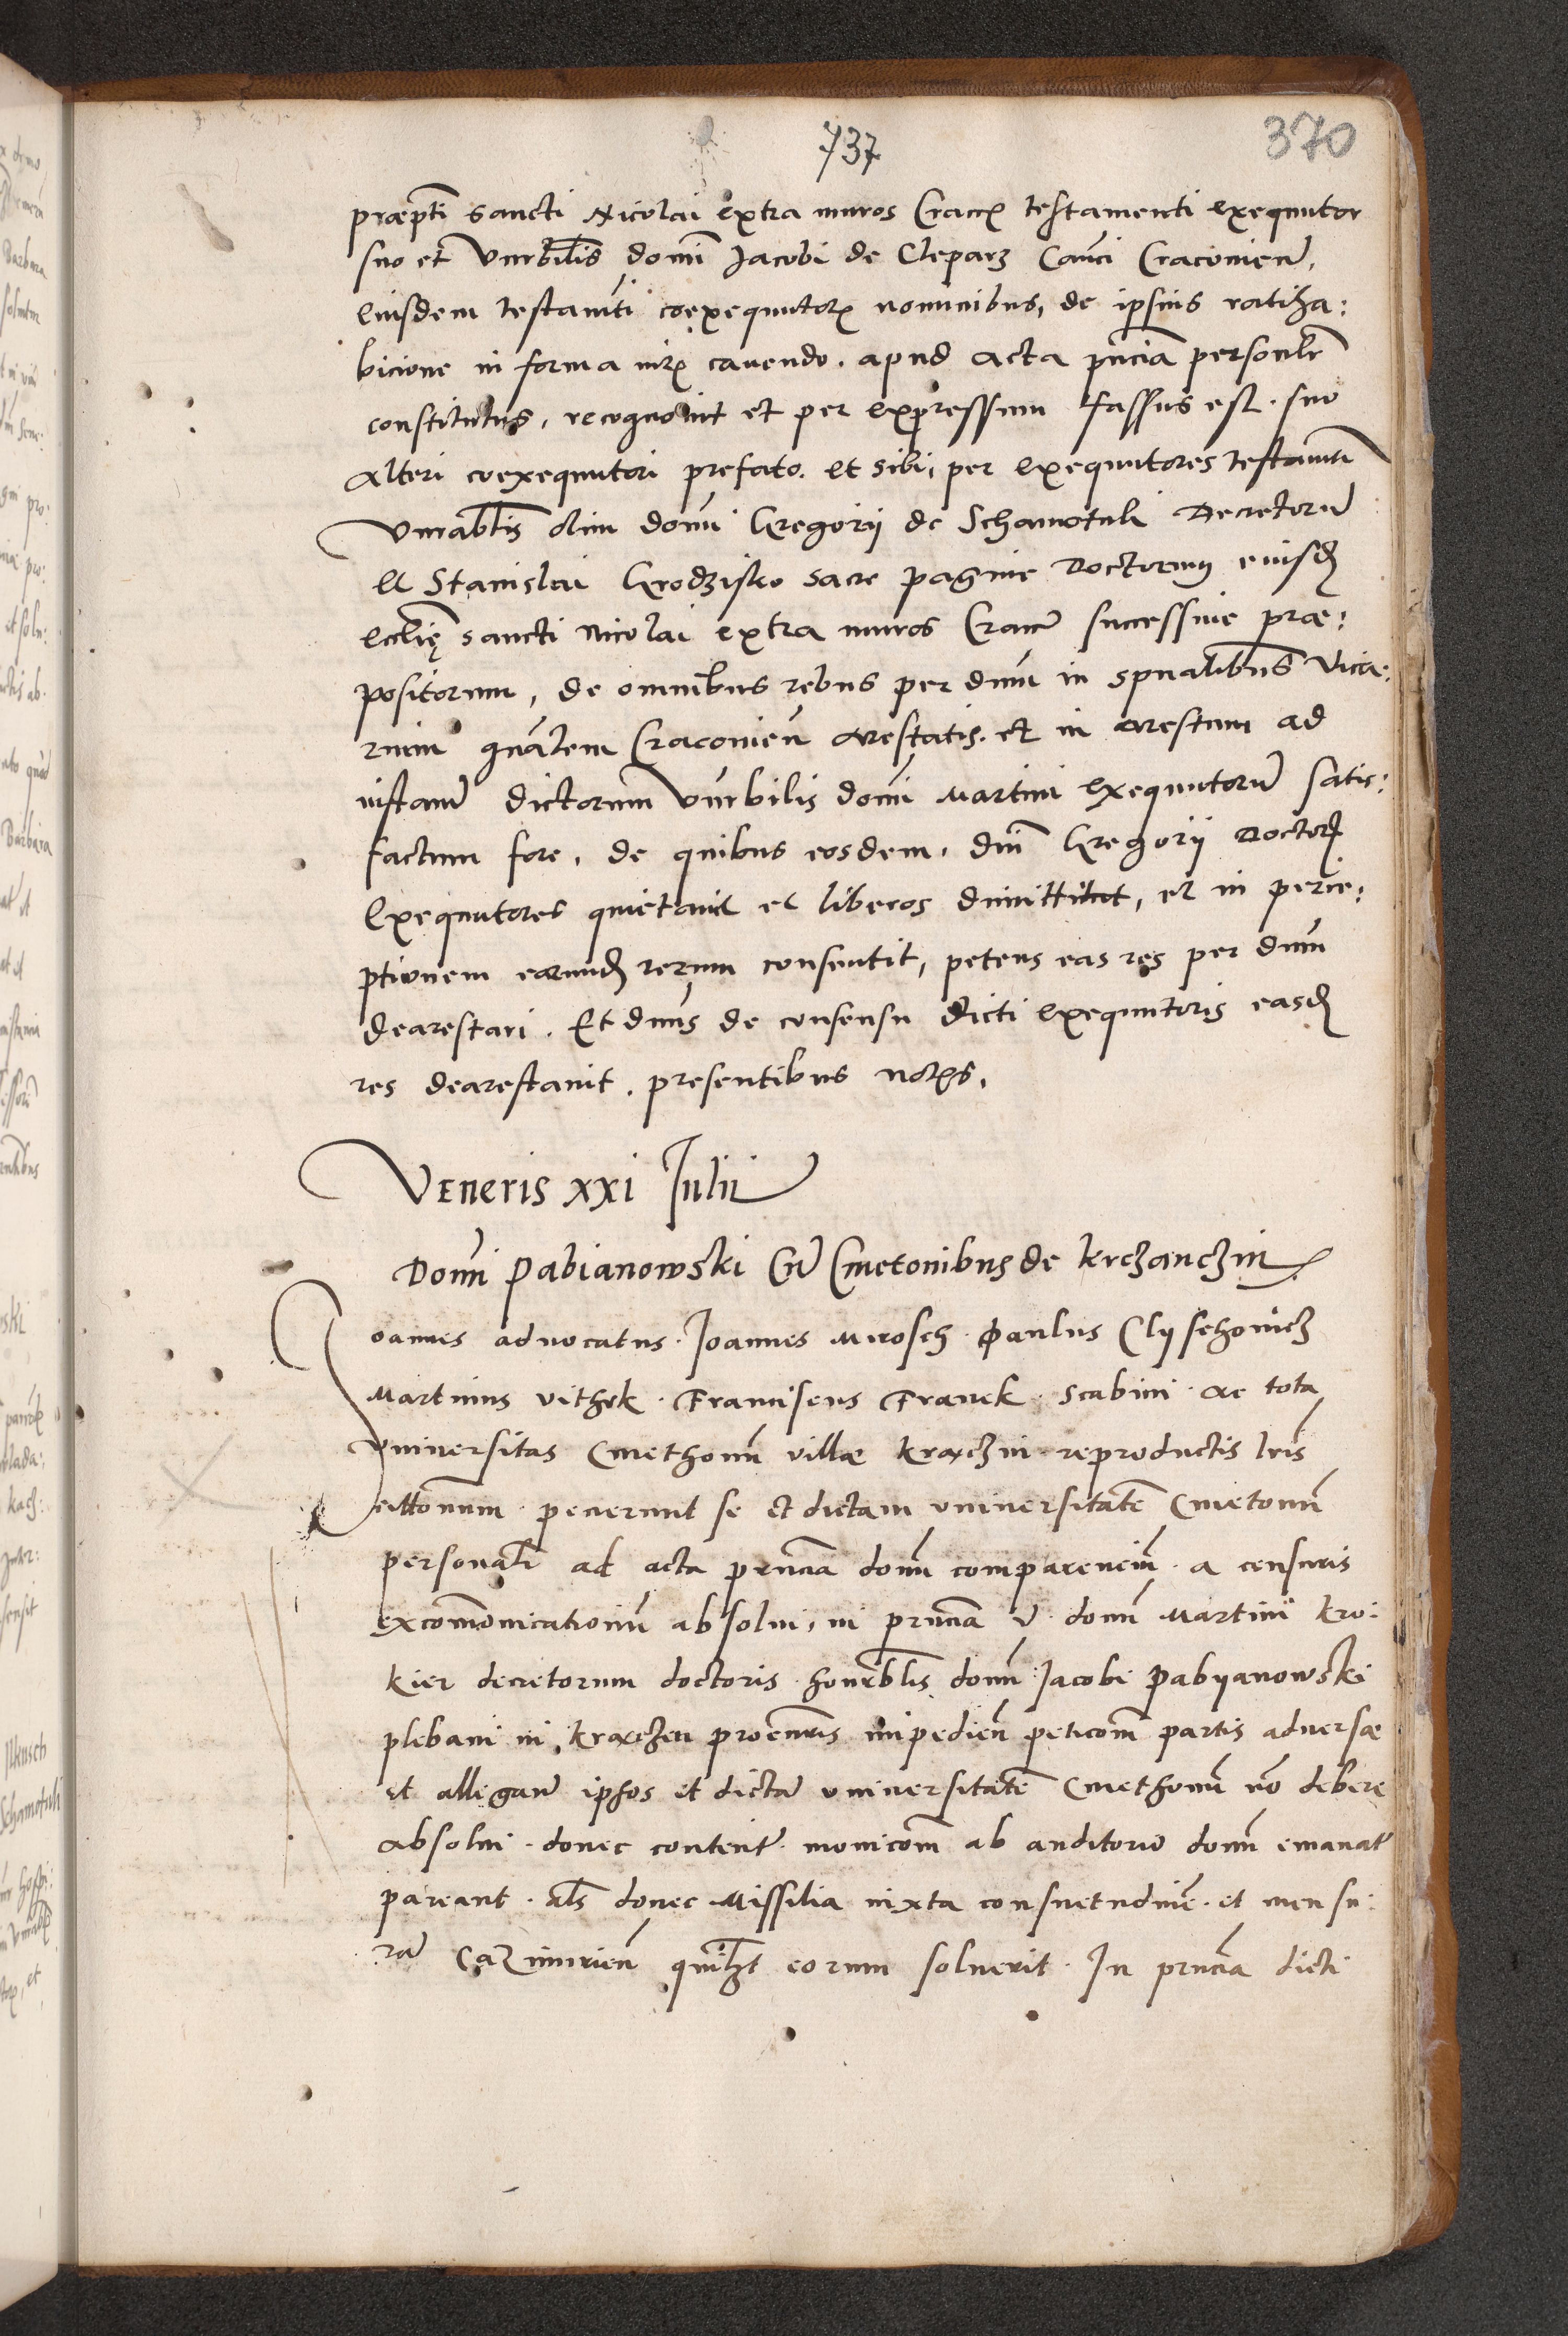 737
370
præpti sancti Nicolai extra muros Cracoῡ testamenti exequutor
suo et Vnrbilis domi Jacobi de Clepars Cauci Cracovien̄,
Eiusdem testamti coexequutor nominibus, de ipsius ratiha:
bicione in forma iur cavendo. apud acta pn̄cia personlr
constitutus, recognovit et per expressum fassus est. suo
alteri coexequutori prefato. et sibi, per exequutores testamti
Vnrablis olim domi Gregorij de Schamotuli Decretorū
et Stanislai Grodzisko sacre pagine Doctorum eiusd
ecclię sancti Nicolai extra muros Cracῡ successive præ:
positorum, de omnibus rebus per dnm in spualibus Vica:
rium gnālem Cracovien̄ arestatis. et in arestum ad
instanῡ dictorum Vnrbilis domi Martini exequutorū satis:
factum fore, de quibus eosdem, dni Gregorij Doctor
exequutores quietavit et liberos dimittitut, et in perce:
ptionem earund rerum consentit, petens eas res per dnm
dearestari. Et dnus de consensu dicti exequutoris easd
res dearestavit. presentibus notis.
Veneris XXI Julii
Domi Pabianowski Cū Cmetonibus de Krczanczin
Joannes advocatus. Joannes Mrosch. Paulus Clyschowicz
Martinus Vithek. Franciscus Franek. Scabini. ac tota
universitas Cmethonū villæ Kraczin. reproductis lris
peticionum petierunt se et dictam universitatē Cmetonū
personalr ad acta prn̄cia domī comparenciū. a censuris
excomonicationū absolvi, in prn̄cia V. domī Martini Kro:
kier decretorum doctoris. honrblis domī Jacobi Pabyanowski
plebani in Kraczen procuratoris impedien̄ peticom partis adversæ
et allegan̄ ipsos et dictā universitatē Cmethonū nō debere
absolvi. donec content. monicom ab auditorio domī emanat
pareant. als donec Missilia iuxta consuetudinē. et mensu:
rā Cazimirien̄ quilzt eorum solverit. In prn̄cia dicti